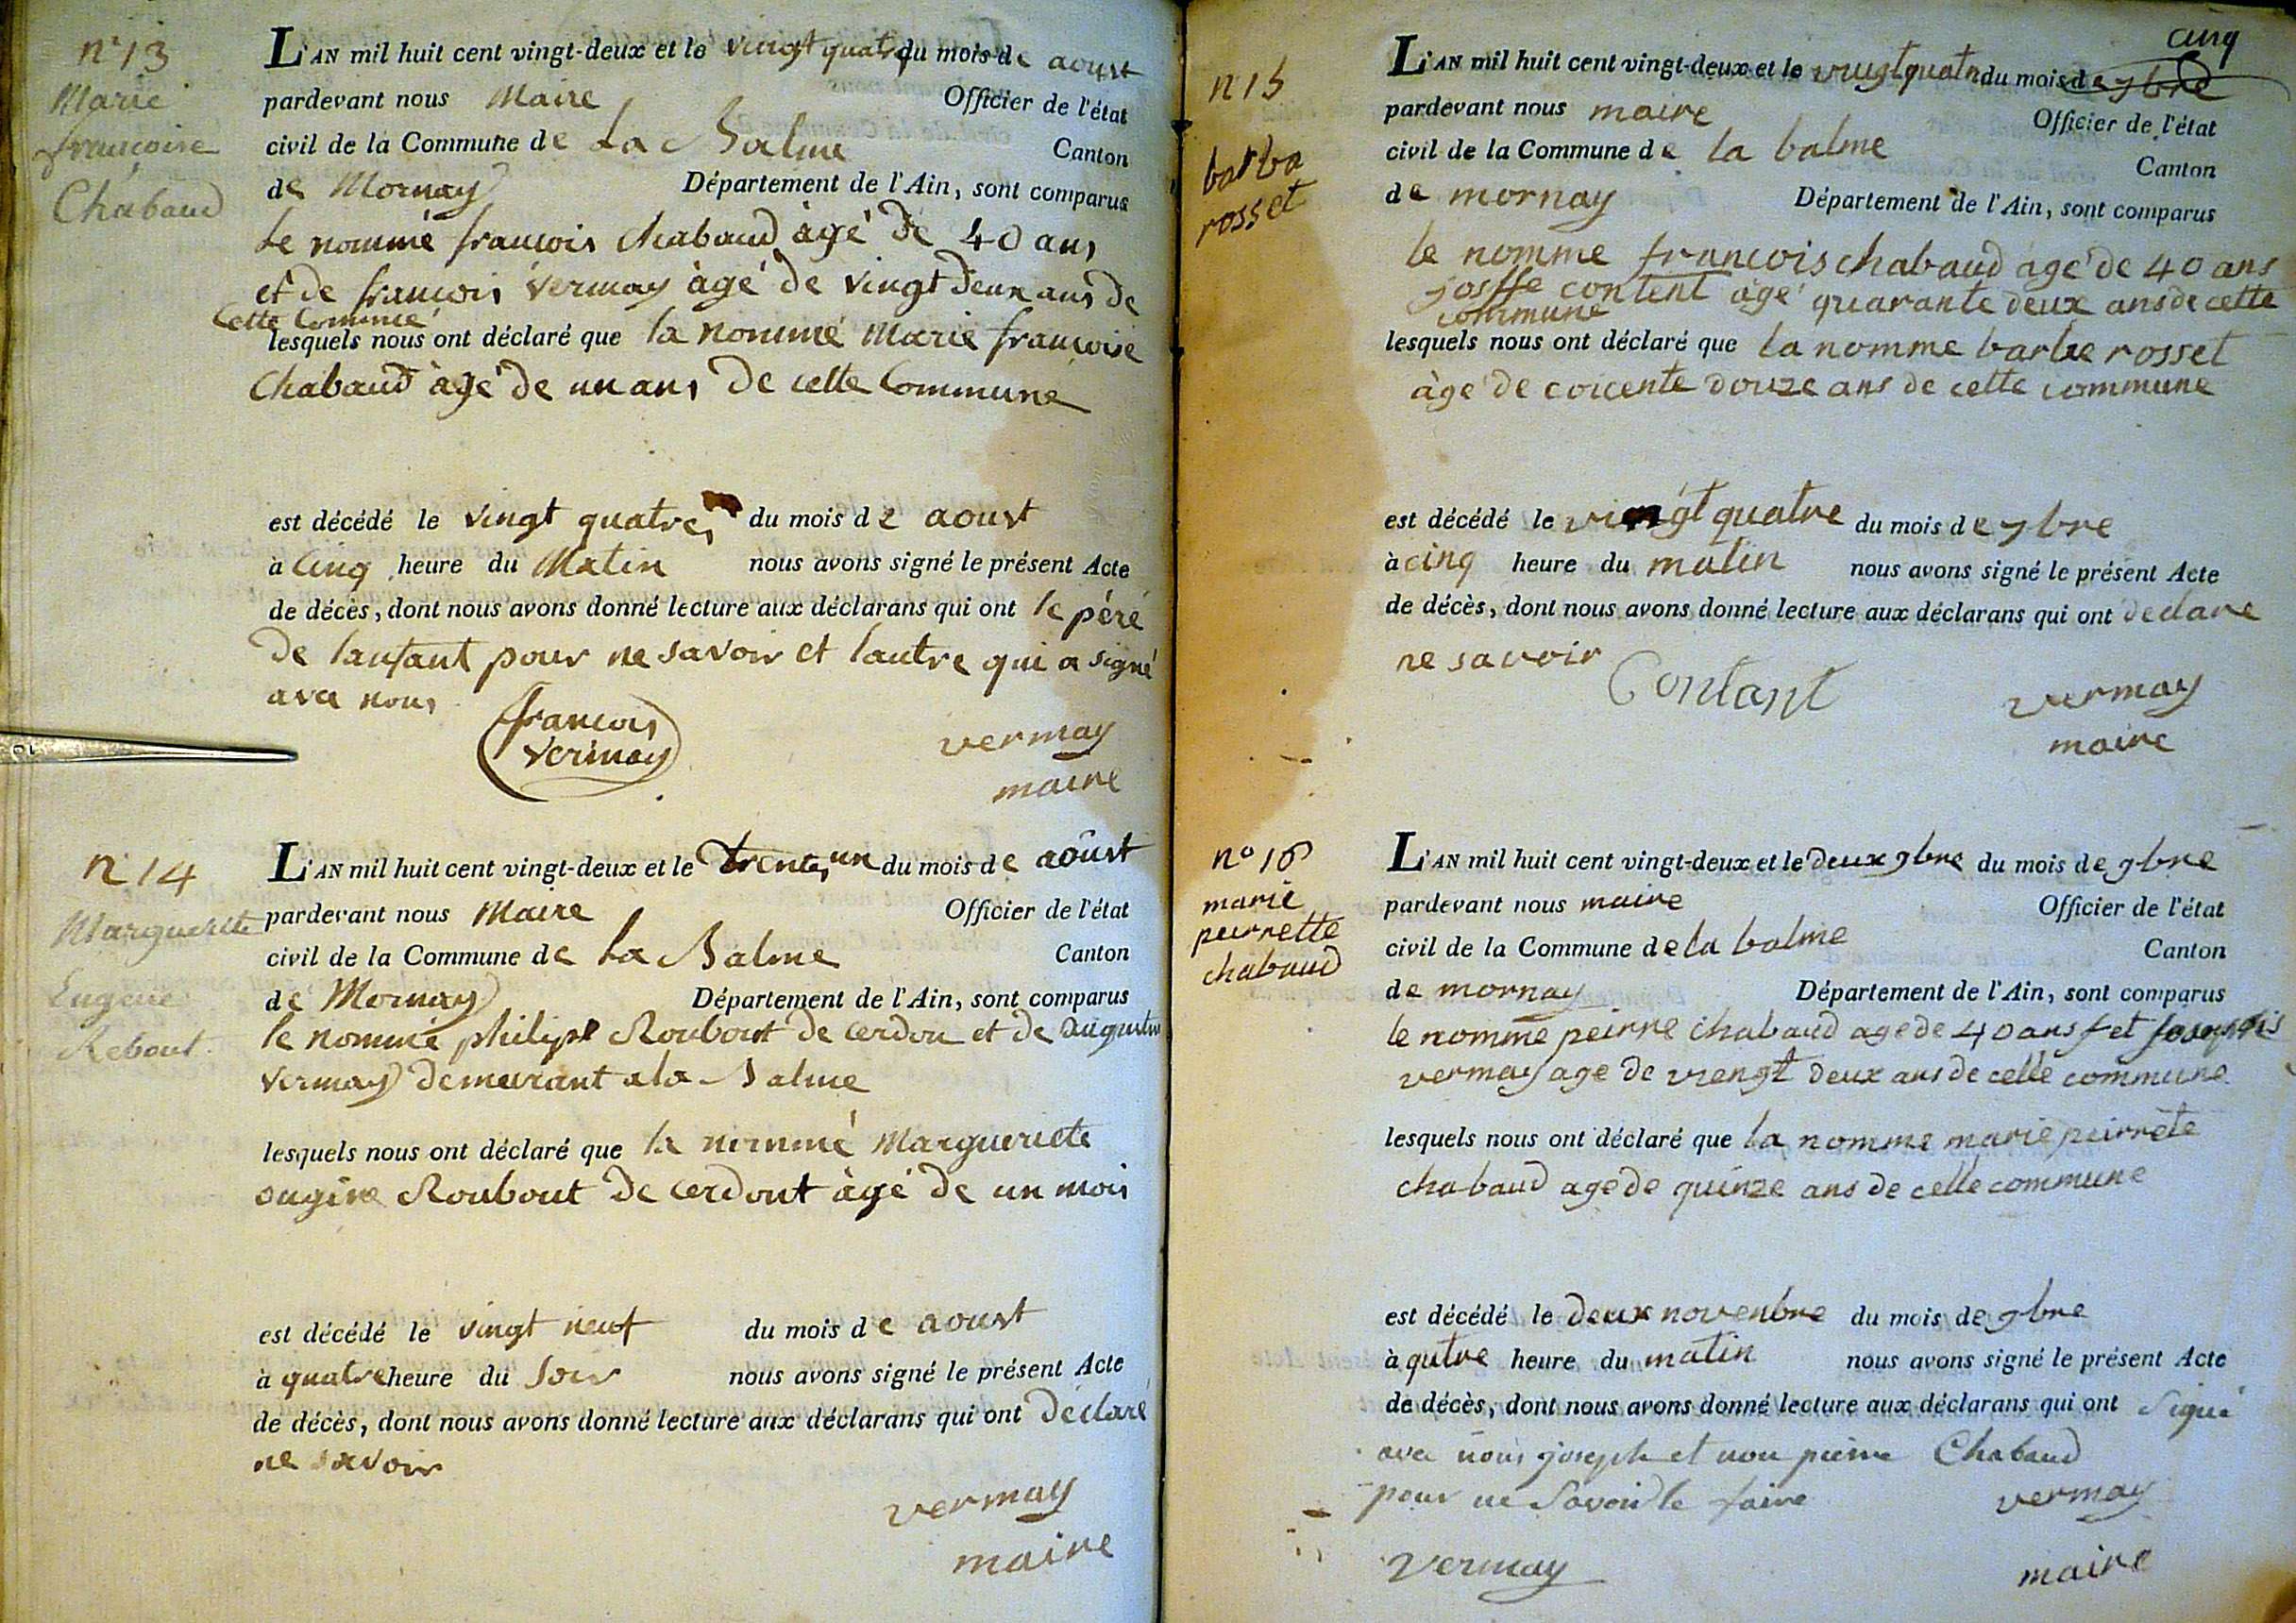 n° 13
Marie
francoise
Chabaud
L'AN mil huit cent vingt-deux et le vingt quatre du mois de aoust
pardevant nous Maire Officier de l'état
civil de la Commune de La Balme Canton
de Mornay Département de l'Ain, sont comparus
Le nommé francois Chabaud àgé de 40 ans
et de francois Vermay àgé de vingt deux ans de
Cette Commune
lesquels nous ont déclaré que la nommé Marie francoise
Chabaud àgé de un ans de cette Commune
est décédé le vingt quatre du mois de aoust
à Cinq heure du Matin nous avons signé le présent Acte
de décès, dont nous avons donné lecture aux déclarans qui ont le péré
de lanfant pour ne savoir et lautre qui a signé
avec nous
francois
Vermay
vermay
maire
n° 14
Marguerite
Eugene
Rebout
L'AN mil huit cent vingt-deux et le trente un du mois de aoust
pardevant nous Maire Officier de l'état
civil de la Commune de La Balme Canton
de Mornay Département de l'Ain, sont comparus
le nommé philipe Roubout de cerdon et de augustin
Vermay demeurant a la Balme
lesquels nous ont déclaré que la nommé Margueriete
ougine Roubout de cerdont àgé de un mois
est décédé le vingt neuf du mois de aoust
à quatre heure du soir nous avons signé le présent Acte
de décès, dont nous avons donné lecture aux déclarans qui ont déclaré
ne savoir
vermay
maire
n 15
barba
rosset
cinq
L'AN mil huit cent vingt-deux et le vingt quatre du mois de 7bre
pardevant nous maire Officier de l'état
civil de la Commune de la balme Canton
de mornay Département de l'Ain, sont comparus
le nomme francois chabaud àgé de 40 ans
josffe content àgé quarante deux ans de cette
commune
lesquels nous ont déclaré que la nomme barbe rosset
àgé de coicente douze ans de cette commune
est décédé le vingt quatre du mois de 7bre
à cinq heure du matin nous avons signé le présent Acte
de décès, dont nous avons donné lecture aux déclarans qui ont declare
ne savoir
Contant
vermay
maire
n° 16
marie
peirrette
chabaud
L'AN mil huit cent vingt-deux et le deux 9bre du mois de 9bre
pardevant nous maire Officier de l'état
civil de la Commune de la balme Canton
de mornay Département de l'Ain, sont comparus
le nomme peirre chabaud age de 40 ans et
vermay age de vengt deux ans de cette commune
lesquels nous ont déclaré que la nomme marie peirrete
chabaud age de quinze ans de cette commune
est décédé le deux novenbre du mois de 9bre
à qutre heure du matin nous avons signé le présent Acte
de décès, dont nous avons donné lecture aux déclarans qui ont Signé
avec nous joseph et non pierre Chabaud
pour ne Savoir le faire
vermay
Vermay
maire